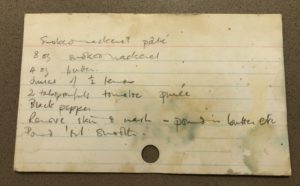 Smoked mackerel pâté
8 oz smoked mackerel
4 oz butter
Juice of ½ lemon
2 tablespoonfuls tomatoe purée
Black pepper
Remove skin & mash - pound in butter etc
Pound 'til smooth.